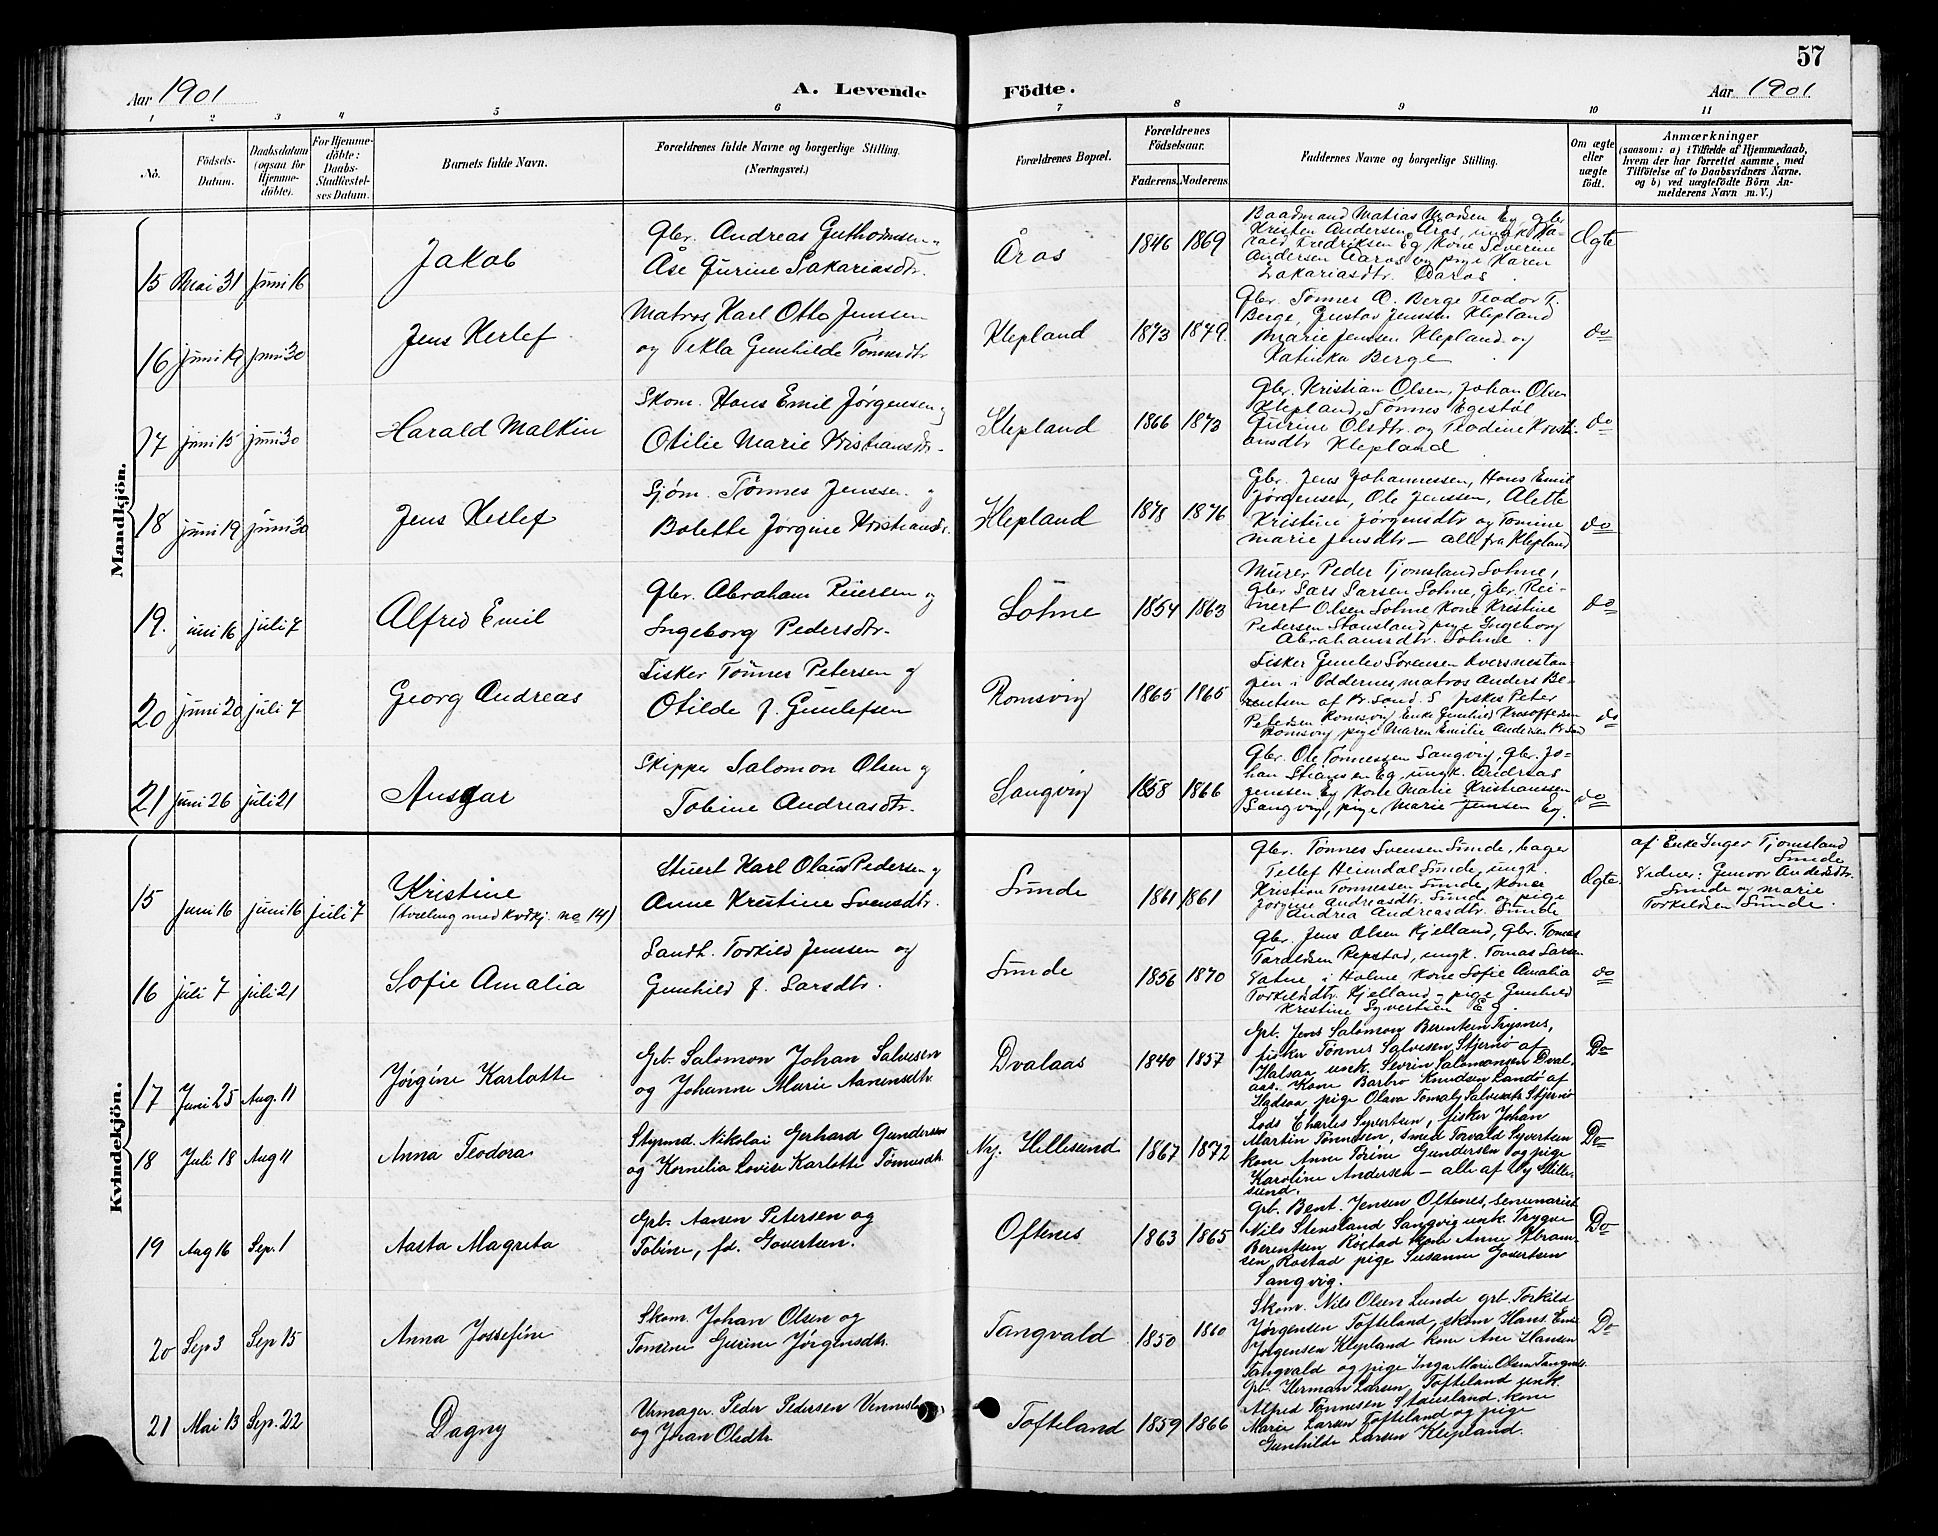 57
Aar 1901
A. Levende
Födte.
Aar 1901
1 2 3 4 5 6 7 8 9 10 11
No.
Födsels-
Datum.
Daabsdatum
(ogsaa for
Hjemme-
döbte).
For Hjemme-
döbte:
Daabs-
Stadfæstel-
ses Datum.
Barnets fulde Navn.
Forældrenes fulde Navne og borgerlige Stilling.
(Næringsvei.)
Forældrenes Bopæl.
Forældrenes
Födselsaar.
Faderens. Moderens.
Faddernes Navne og borgerlige Stilling.
Om ægte
eller
uægte
födt.
Anmærkninger
(saasom: a) i Tilfælde af Hjemmedaab,
hvem der har forrettet samme, med
Tilföielse af to Daabsvidners Navne,
og b) ved uægtefödte Börn An-
melderens Navn m. V.)
Mandkjön.
15 Mai 31 Juni 16
Jakob
Gbr. Andreas Guthormsen
Åse Gurine Sakariasdtr.
Åros
1846 1869
Baadmand Matias Monsen Eg, gbr
Kristen Andersen Åros, ungk. Ha-
rald Fredriksen Eg Kone Severine
Andersen Aaros og pige Karen
Zakariasdtr. Aaros
Ægte
16 Juni 19 Juni 30
Jens Herlef
Matros Karl Otto Jenssen
og Tekla Gunhilde Tønnesdtr
Klepland
1873 1879.
Gbr. Tønnes O. Berge Teodor T.
Berge, Gustav Jenssen Klepland
Marie Jenssen Klepland og
Katinka Berge
do
17 Juni 15 Juni 30
Harald Malkin
Skom. Hans Emil Jørgensen og
Otilie Marie Kristiansdtr.
Klepland
1866 1873
Gbr. Kristian Olsen, Johan Olsen
Klepland, Tønnes Egestøl
Gurine Olsdtr. og Teodine Kristi-
ansdtr Klepland
do
18 Juni 19 Juni 30
Jens Herlef
Sjøm. Tønnes Jenssen og
Bolette Jørgine Kristiansdtr.
Klepland
1878 1876
Gbr. Jens Johannessen, Hans Emil
Jørgensen, Ole Jenssen, Alette
Kristine Jørgensdtr og Tomine
Marie Jensdtr — alle fra Klepland
do
19. Juni 16 Juli 7
Alfred Emil
Gbr. Abraham Reiersen og
Ingeborg Pedersdtr.
Søhme
1854 1863
Murer Peder Tjomsland Søhme,
gbr Lars Larsen Søhme, gbr. Rei-
nert Olsen Søhme Kone Kristine
Pedersen Stausland pige Ingeborg
Abrahamsdtr. Søhme.
do
20 Juni 20 Juli 7
Georg Andreas
Fisker Tønnes Petersen og
Otilde J. Gunlefsen
Romsvig
1865 1865
Fisker Gunlev Sørensen Kversnestan-
gen i Oddernes, matros Anders Be-
rentsen af Kr. Sand. S fisker Peter
Petersen Romsvig Enke Gunhild
Romsvig, pige Maren Emilie Andersen Kr. Sand
do
21 Juni 26 Juli 21
Ansgar
Skipper Salomon Olsen og
Tobine Andreasdtr.
Sangvig
1858 1866
Gbr. Ole Tønnessen Sangvig, Gbr. Jo-
han Stiansen Eg, ungk. Andreas
Jenssen Eg Kone Marie Kristianssen
Sangvig, pige Marie Jenssen Eg.
do
Kvindekjön.
15 Juni 16 Juni 16 Juli 7
Kristine
(tvæling med Kvdkj. no 14)
Stuert Karl Olaus Pedersen og
Anne Kristine Svensdtr.
Sunde
1861 1861
Gbr. Tønnes Svensen Sunde, bager
Tellef Heimdal Sunde, ungk.
Kristian Tønnessen Sunde, Koner
Jørgine Andreasdtr. Sunde og pige
Andrea Andreasdtr. Sunde
Ægte.
af Enke Inger Tjomsland
Sunde
Vidner: Gunvor Andersdtr.
Sunde og Marie
Torkildsen Sunde.
16 Juli 7 Juli 21
Sofie Amalia
Landh. Torkild Jenssen og
Gunhild J. Larsdtr.
Sunde
1856 1870
Gbr. Jens Olsen Kjelland, Gbr. Tomas
Taraldsen Repstad, ungk. Tomas Larsen
Vatne i Holme Kone Sofie Amalia
Torkildsdtr. Kjelland, pige Gunhild
Kristine Syvertsen Eg.
do
17 Juni 25 Aug. 11
Jørgine Karlotte
Grb. Salomon Johan Salvesen
og Johanne Marie Aanensdtr.
Dvalaas
1840 1857
Grb. Jens Salomon Berentsen Trysnes,
fisker Tønnes Salvesen Stjernø af
Halsaa unk. Sevrin Salomonsen Dval-
aas. Kone Barbro Knudsen Landø af
Halsaa pige Olava Tomaly Salvesdtr Stjernø
Do
18 Juli 18 Aug 11
Anna Teodora
Styrmd. Nikolai Gerhard Gundersen
og Kornelia Lovise Karlotte Tønnesdtr.
Ny. Hellesund
1867 1872
Lods Charles Syvertsen, fisker Johan
Martin Tønnesen, smed Torvald Syvertsen
kone Anne Torine Gundersen og pige
Karoline Andersen — alle af Ny Helle-
sund.
Do
19 Aug 16 Sep. 1
Aasta Magreta
Grb. Aanen Petersen og
Tobine, fd. Govertsen.
Oftenes
1863 1865
Grb. Bent. Jensen Oftenes, Seminarist
Nils Stensland Sangvig unk. Trygve
Berentsen Røstad kone Anne Abram-
sen Rostad pige Susanne Govertsen
Sangvig.
Do
20 Sep 3 Sep 15
Anna Jossefine
Skom. Johan Olsen og
Tomine Gurine Jørgensdtr.
Tangvald
1850 1860
Skom. Nils Olsen Lunde grb. Torkild
Jørgensen Tofteland, skom Hans Emil
Jørgensen Klepland kone Ane Hansen
Tangvald og pige Inga Marie Olsen Tangvald.
Do
21 Mai 13 Sep. 22
Dagny
Urmager. Peder Pedersen
og Joran Olsdtr
Tofteland
1859 1866
Grb. Herman Larsen Tofteland unk.
Alfred Tønnesen Stausland, kone
Marie Larsen Tofteland og pige
Gunhilde Larsen Klepland.